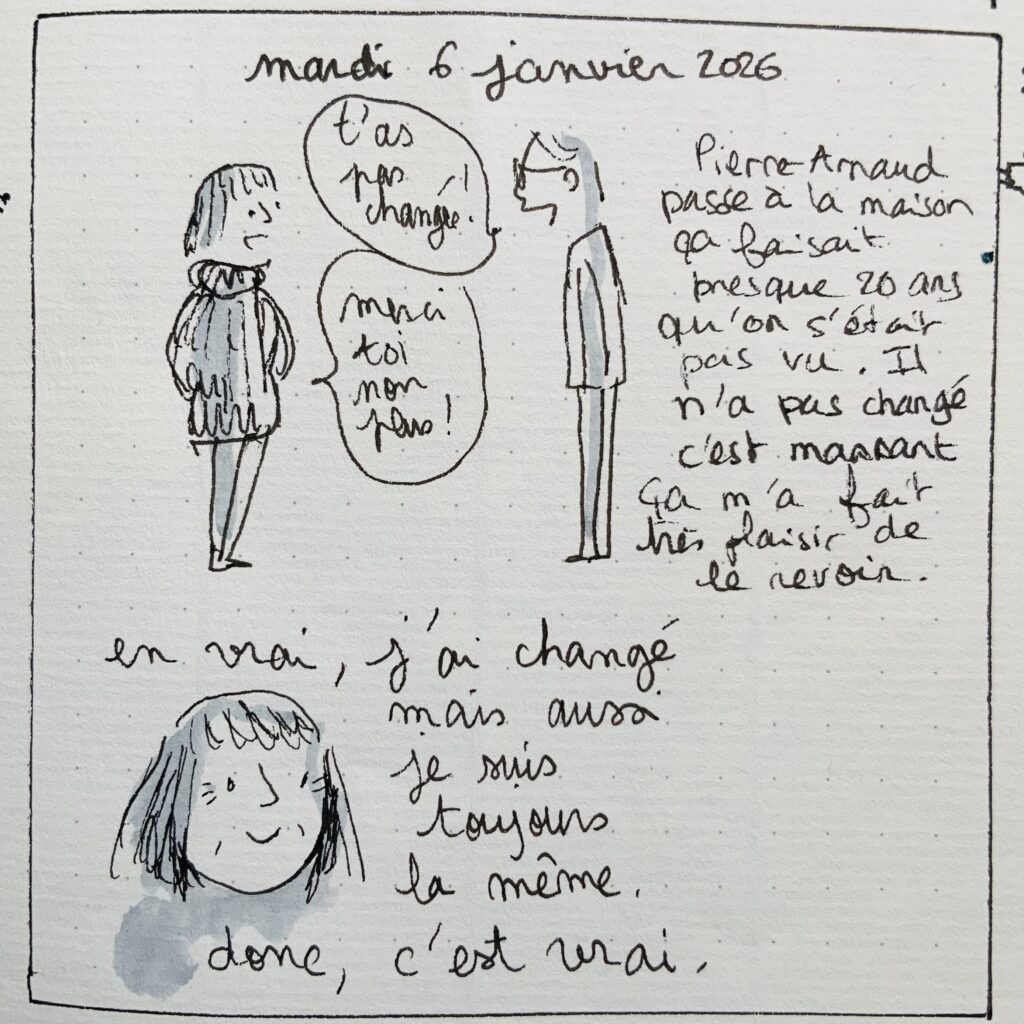 mardi 6 janvier 2026
t'as
pas
changée!
merci
toi
non
plus!
Pierre-Arnaud
passe à la maison
ça faisait
presque 20 ans
qu'on s'était
pas vu. Il
n'a pas changé
c'est marrant
Ça m'a fait
très plaisir de
le revoir.
en vrai, j'ai changé
mais aussi
je suis
toujours
la même.
donc, c'est vrai.